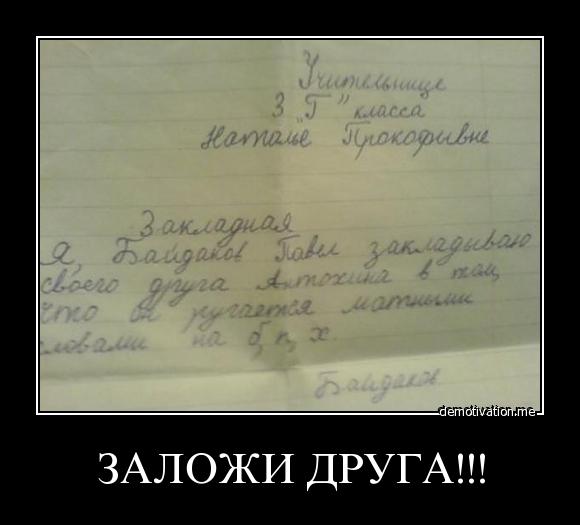 Учительнице
3 "Г" класса
Наталье Прокофьвне
Закладная
Я, Байдаков Павел закладываю
своего друга Антохина в том,
что он ругается матными
словами на б, п, х.
Байдаков
demotivation.me
ЗАЛОЖИ ДРУГА!!!